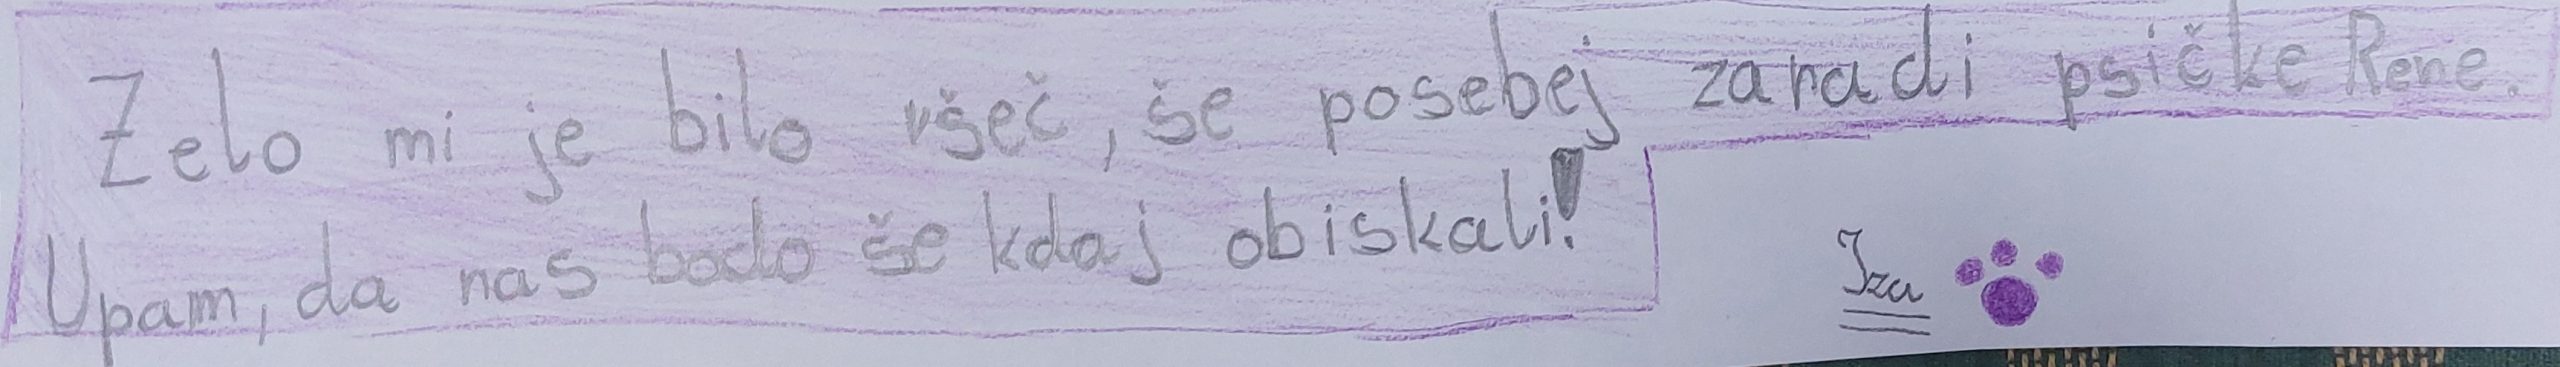 Zelo mi je bilo všeč, še posebej zaradi psičke Rene.
Upam, da nas bodo še kdaj obiskali!
Iza